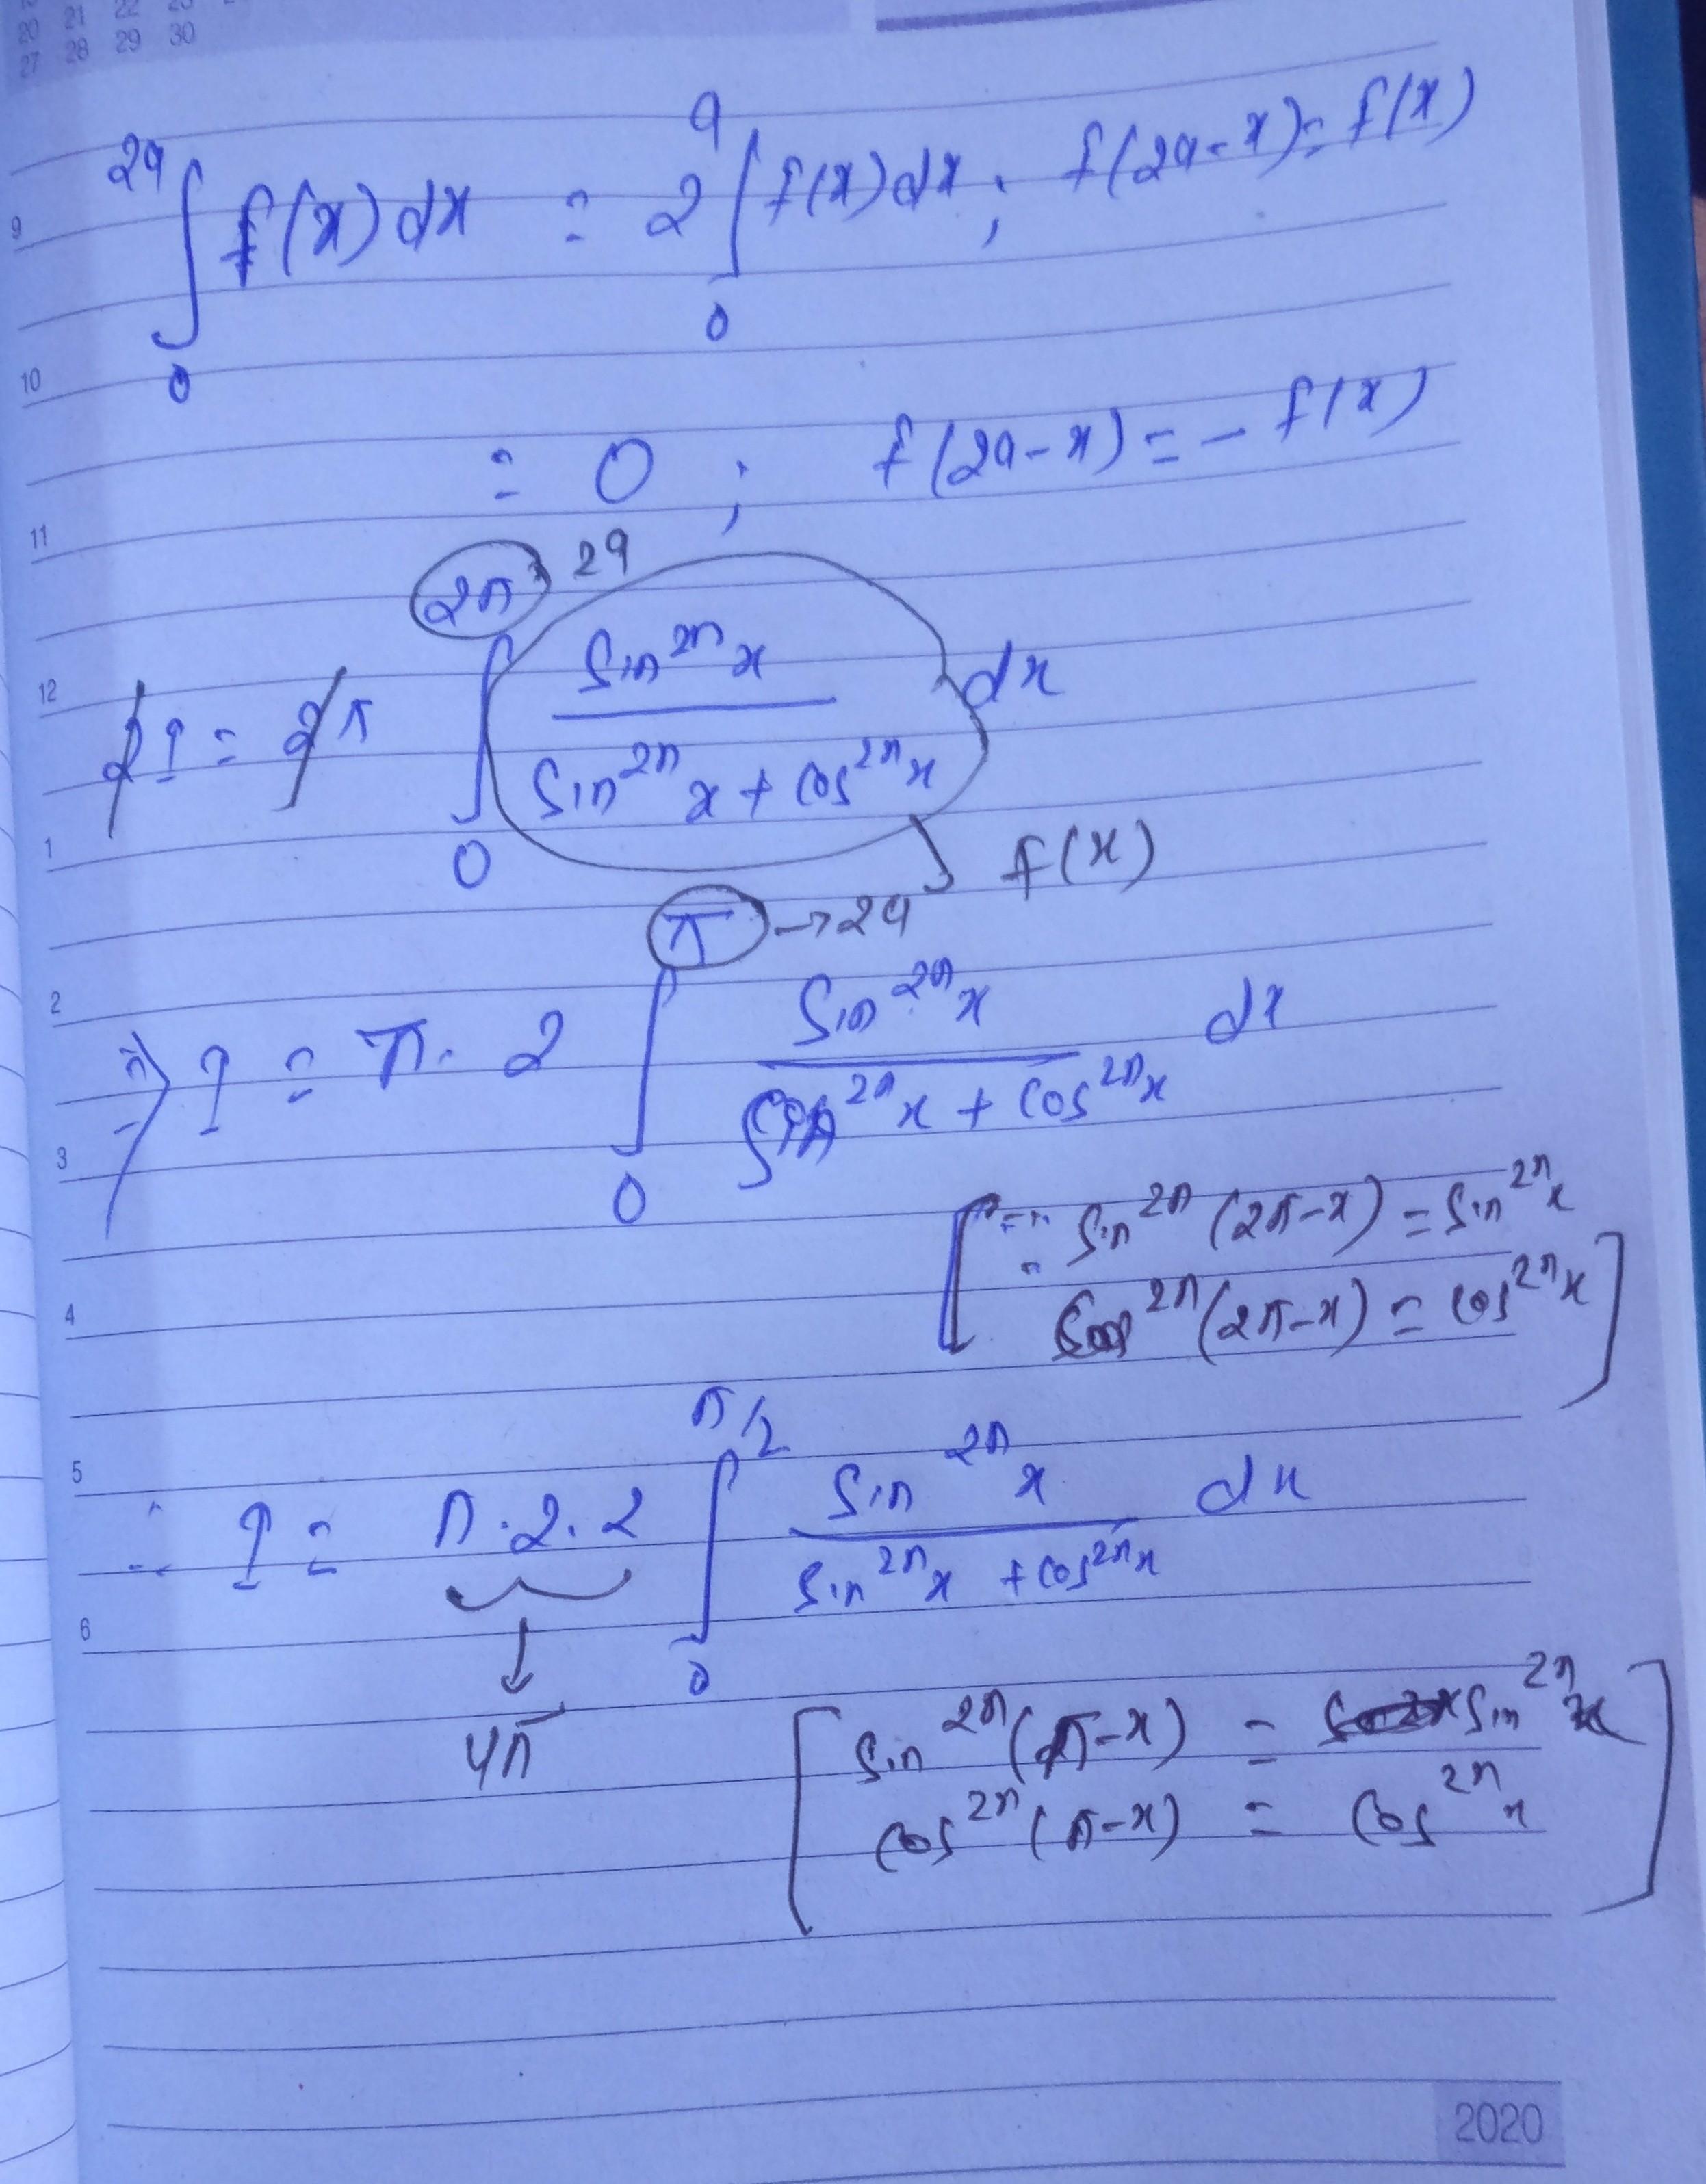 20 21 22 23
27 28 29 30
∫₀²ᵃ f(x) dx = 2 ∫₀ᵃ f(x) dx ; f(2a-x) = f(x)
9
10
= 0 ; f(2a-x) = - f(x)
11
2π → 2a
12
2I = 2π ∫₀^{2π} sin²ⁿx / (sin²ⁿx + cos²ⁿx) dx
1
f(x)
π → 2a
2
⇒ I = π. 2 ∫₀^{π} sin²ⁿx / (sin²ⁿx + cos²ⁿx) dx
3
[∵ sin²ⁿ (2π-x) = sin²ⁿx
4
cos²ⁿ (2π-x) = cos²ⁿx]
5
∴ I = π.2.2 ∫₀^{π/2} sin²ⁿx / (sin²ⁿx + cos²ⁿx) dx
6
↓
4π
[sin²ⁿ (π-x) = sin²ⁿx
cos²ⁿ (π-x) = cos²ⁿx]
2020